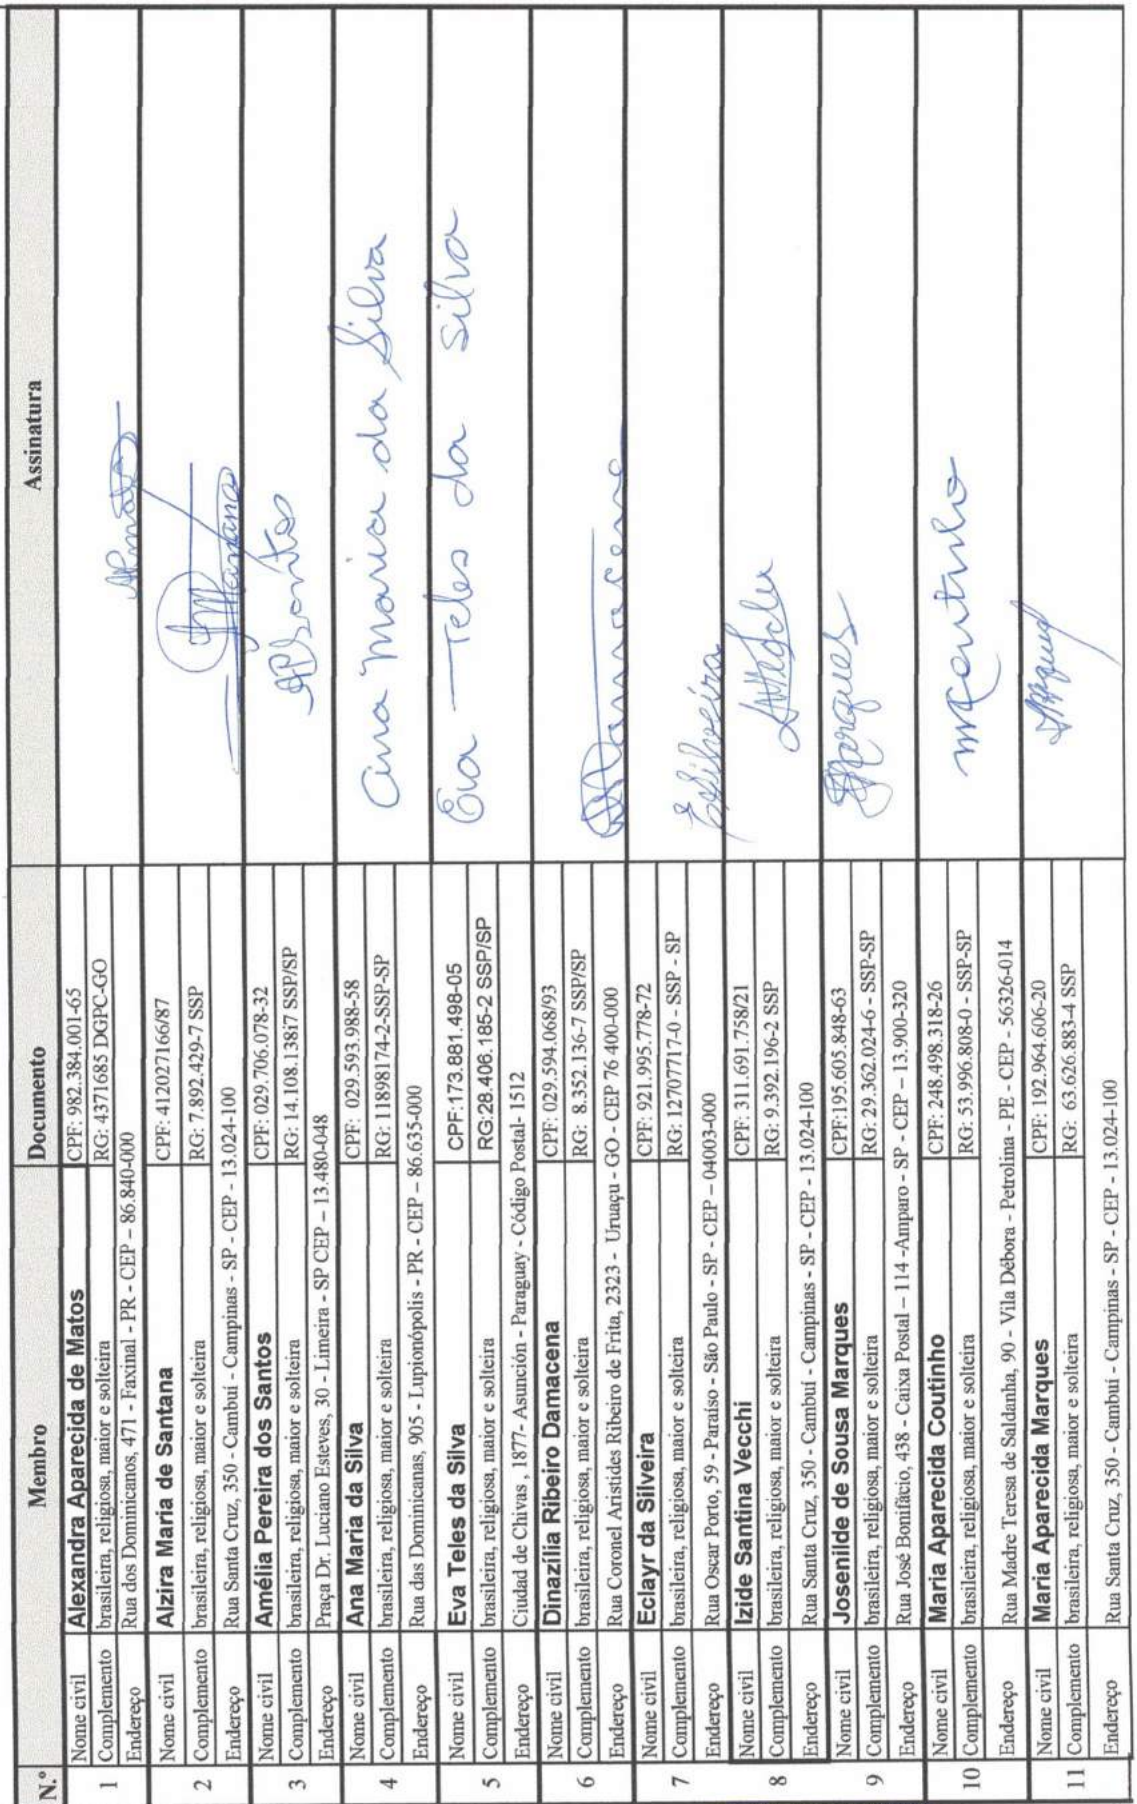 N.º Membro Documento Assinatura
1 Nome civil Alexandra Aparecida de Matos CPF: 982.384.001-65
Complemento brasileira, religiosa, maior e solteira RG: 4371685 DGPC-GO
Endereço Rua dos Dominicanos, 471 - Faxinal - PR - CEP – 86.840-000
2 Nome civil Alzira Maria de Santana CPF: 412027166/87
Complemento brasileira, religiosa, maior e solteira RG: 7.892.429-7 SSP
Endereço Rua Santa Cruz, 350 - Cambuí - Campinas - SP - CEP - 13.024-100
3 Nome civil Amélia Pereira dos Santos CPF: 029.706.078-32 APSantos
Complemento brasileira, religiosa, maior e solteira RG: 14.108.138i7 SSP/SP
Endereço Praça Dr. Luciano Esteves, 30 - Limeira - SP CEP – 13.480-048
4 Nome civil Ana Maria da Silva CPF: 029.593.988-58 Ana Maria da Silva
Complemento brasileira, religiosa, maior e solteira RG: 11898174-2-SSP-SP
Endereço Rua das Dominicanas, 905 - Lupionópolis - PR - CEP – 86.635-000
5 Nome civil Eva Teles da Silva CPF:173.881.498-05 Eva Teles da Silva
Complemento brasileira, religiosa, maior e solteira RG:28.406.185-2 SSP/SP
Endereço Ciudad de Chivas , 1877- Asunción - Paraguay - Código Postal- 1512
6 Nome civil Dinazília Ribeiro Damacena CPF: 029.594.068/93 Damacena
Complemento brasileira, religiosa, maior e solteira RG: 8.352.136-7 SSP/SP
Endereço Rua Coronel Aristides Ribeiro de Frita, 2323 - Uruaçu - GO - CEP 76 400-000
7 Nome civil Eclayr da Silveira CPF: 921.995.778-72 EdSilveira
Complemento brasileira, religiosa, maior e solteira RG: 12707717-0 - SSP - SP
Endereço Rua Oscar Porto, 59 - Paraíso - São Paulo - SP - CEP – 04003-000
8 Nome civil Izide Santina Vecchi CPF: 311.691.758/21
Complemento brasileira, religiosa, maior e solteira RG: 9.392.196-2 SSP
Endereço Rua Santa Cruz, 350 - Cambuí - Campinas - SP - CEP - 13.024-100
9 Nome civil Josenilde de Sousa Marques CPF:195.605.848-63 Marques
Complemento brasileira, religiosa, maior e solteira RG: 29.362.024-6 - SSP-SP
Endereço Rua José Bonifácio, 438 - Caixa Postal – 114 -Amparo - SP - CEP – 13.900-320
10 Nome civil Maria Aparecida Coutinho CPF: 248.498.318-26 MCoutinho
Complemento brasileira, religiosa, maior e solteira RG: 53.996.808-0 - SSP-SP
Endereço Rua Madre Teresa de Saldanha, 90 - Vila Débora - Petrolina - PE - CEP - 56326-014
11 Nome civil Maria Aparecida Marques CPF: 192.964.606-20
Complemento brasileira, religiosa, maior e solteira RG: 63.626.883-4 SSP
Endereço Rua Santa Cruz, 350 - Cambuí - Campinas - SP - CEP - 13.024-100